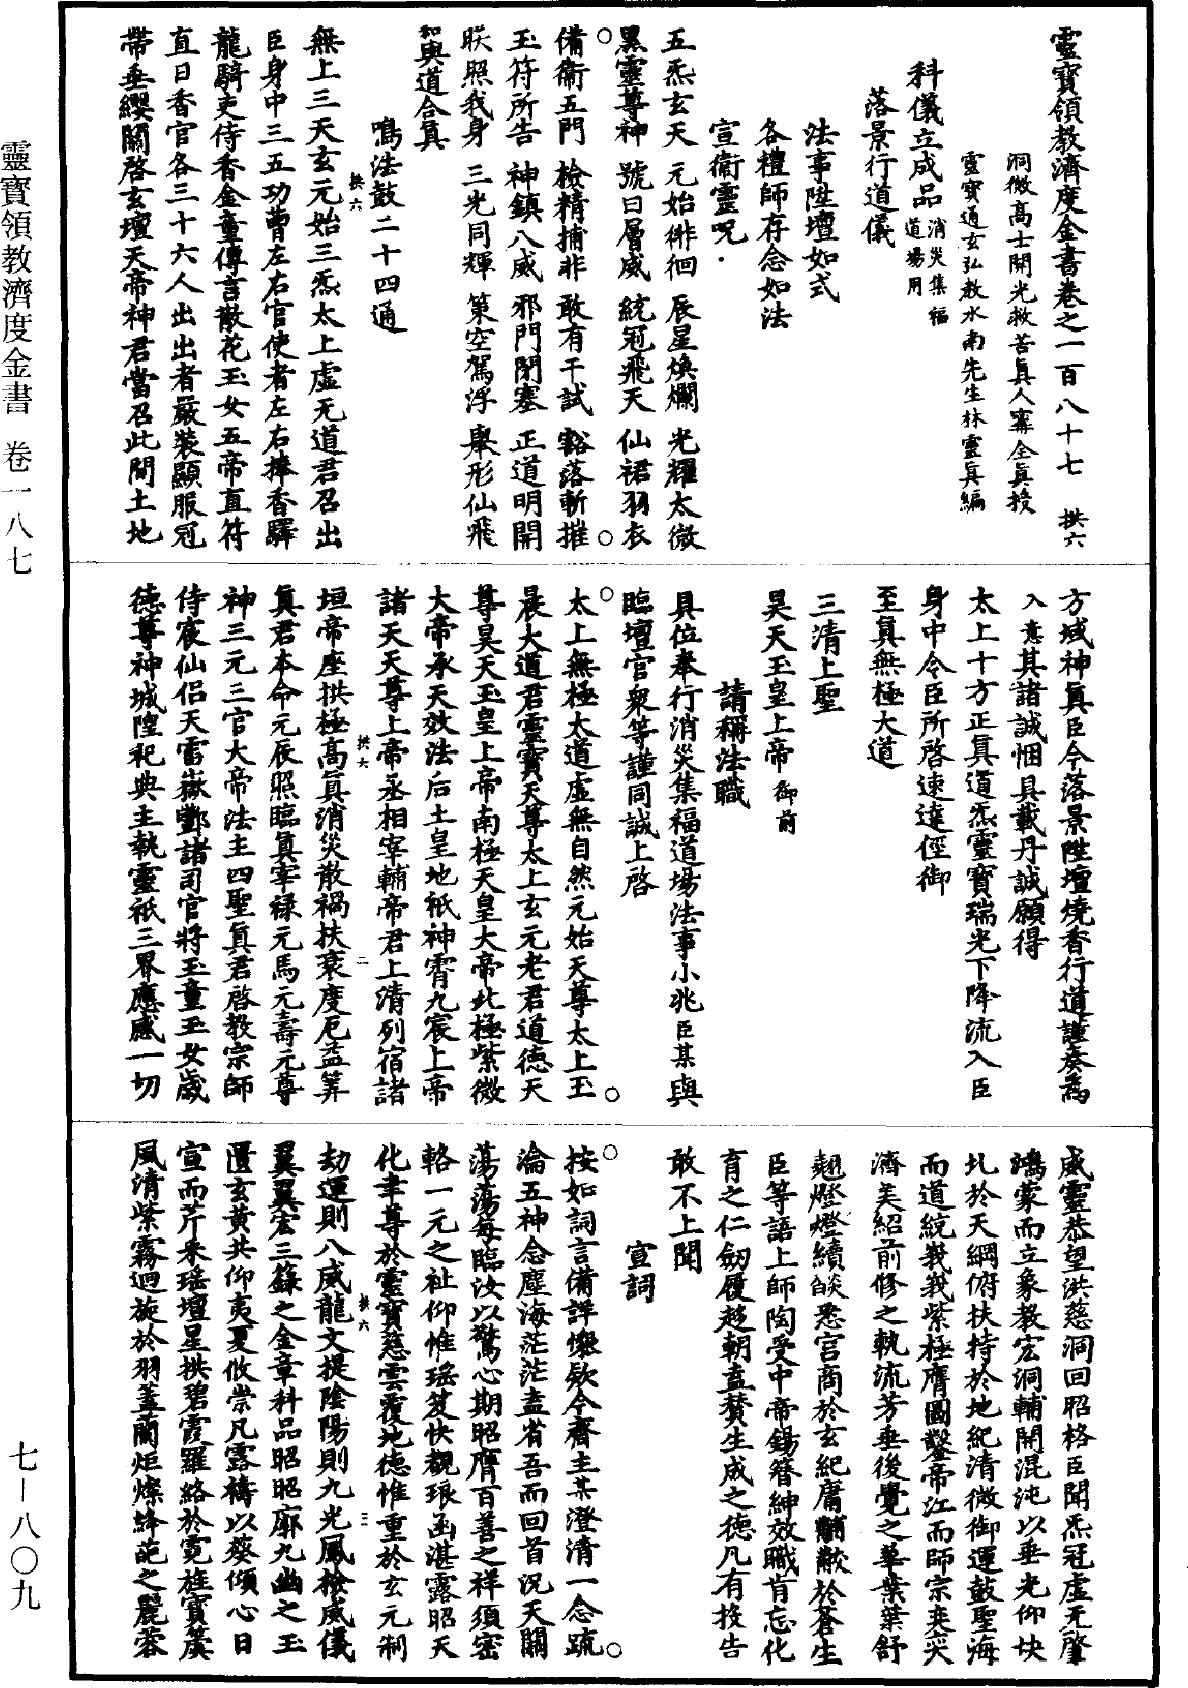 靈寶領教濟度金書卷之一百八十七　拱六
洞微高士開光救苦眞人甯全眞授
靈寶通玄弘教水南先生林靈眞編
科儀立成品消災集福道場用
落景行道儀
法事陞壇如式
各禮師存念如法
宣衞靈呪.
五炁玄天　元始徘徊　辰星煥爛　光耀太微
黑靈尊神　號曰層威　統冠飛天　仙裙羽衣
備衞五門　檢精捕非　敢有干試　豁落斬摧
玉符所告　神鎮八威　邪門閉塞　正道明開
映照我身　三光同輝　策空駕浮　舉形仙飛
和與道合眞
鳴法鼓二十四通
無上三天玄元始三炁太上虛无道君召出
臣身中三五功曹左右官使者左右捧香驛
龍騎吏侍香金童傳言散花玉女五帝直符
直日香官各三十六人出出者嚴裝顯服冠
帶垂纓關啓玄壇天帝神君當召此間土地
方域神眞臣今落景陞壇燒香行道謹奏爲
入意其諸誠悃具載丹誠願得
太上十方正眞道炁靈寶瑞光下降流入臣
身中令臣所啓速達徑御
至眞無極大道
三清上聖
昊天玉皇上帝御前
請稱法職
具位奉行消災集福道場法事小兆臣某與
臨壇官衆等謹同誠上啓
太上無極太道虛無自然元始天尊太上玉
晨大道君靈寶天尊太上玄元老君道德天
尊昊天玉皇上帝南極天皇大帝北極紫微
大帝承天效法后土皇地祇神霄九宸上帝
諸天天尊上帝丞相宰輔帝君上清列宿諸
垣帝座拱極高眞消災散禍扶衰度厄益筭
眞君本命元辰照臨眞宰祿元馬元壽元尊
神三元三官大帝法主四聖眞君啓教宗師
侍宸仙侶天雷嶽酆諸司官將玉童玉女歲
德尊神城隍祀典主執靈祇三界應感一切
威靈恭望洪慈洞回昭格臣聞炁冠虛无肇
鴻蒙而立象教宏洞輔開混沌以垂光仰坱
圠於天綱俯扶持於地紀清微御運鼓聖海
而道統巍巍紫極膺圖鑿帝江而師宗奕奕
濟美紹前修之執流芳垂後覺之華葉葉舒
翹燈燈續燄悉宮商於玄紀庸黼黻於蒼生
臣等語上師陶受中帝錫簪紳效職肯忘化
育之仁劒履趍朝盍贊生成之德凡有投告
敢不上聞
宣詞
按如詞言備詳懇欵今齋主某澄清一念疏
瀹五神念塵海茫茫盍省吾而回首況天關
蕩蕩每臨汝以驚心期昭膺百善之祥須密
輅一元之祉仰惟瑤笈快覩琅函湛露昭天
化聿尊於靈寶慈雲覆地德惟重於玄元制
劫運則八威龍文提陰陽則九光鳳檢威儀
翼翼宏三籙之金章科品昭昭廓九幽之玉
匱玄黃共仰夷夏攸崇凡露禱以葵傾心日
宣而芹釆瑤壇星拱碧霞羅絡於霓旌寶篆
風清紫霧迴旋於羽蓋蘭炬燦絳葩之麗蓉
拱六
拱六　二
拱六　三
靈寶領教濟度金書　卷一八七
七—八〇九